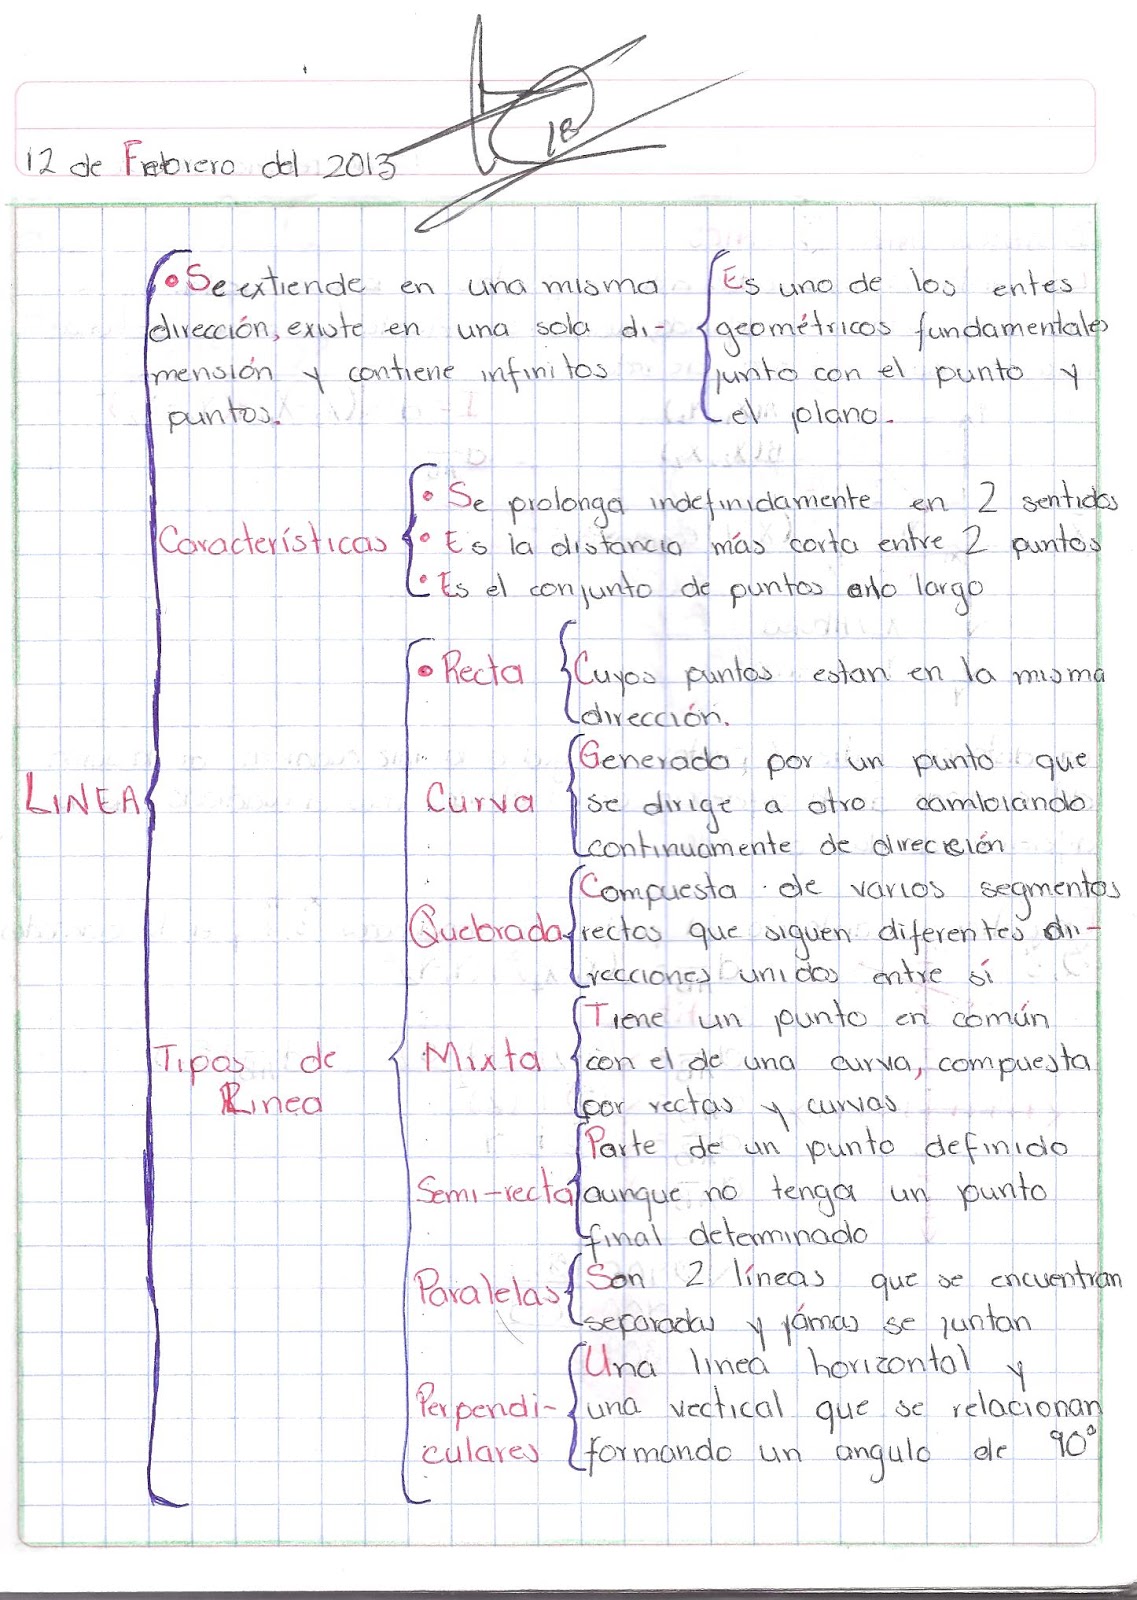 12 de Febrero del 2013
18
• Se extiende en una misma
dirección, existe en una sola di-
mensión y contiene infinitos
puntos.
Es uno de los entes
geométricos fundamentales
junto con el punto y
el plano.
Características
• Se prolonga indefinidamente en 2 sentidos
• Es la distancia más corta entre 2 puntos
• Es el conjunto de puntos a lo largo
LINEA
Tipos de
Linea
• Recta
Cuyos puntos estan en la misma
dirección.
Curva
Generada por un punto que
se dirige a otro cambiando
continuamente de dirección
Quebrada
Compuesta de varios segmentos
rectos que siguen diferentes di-
recciones unidos entre sí
Mixta
Tiene un punto en común
con el de una curva, compuesta
por rectas y curvas
Semi-recta
Parte de un punto definido
aunque no tenga un punto
final determinado
Paralelas
Son 2 líneas que se encuentran
separadas y jámas se juntan
Perpendi-
culares
Una linea horizontal y
una vectical que se relacionan
formando un angulo de 90°